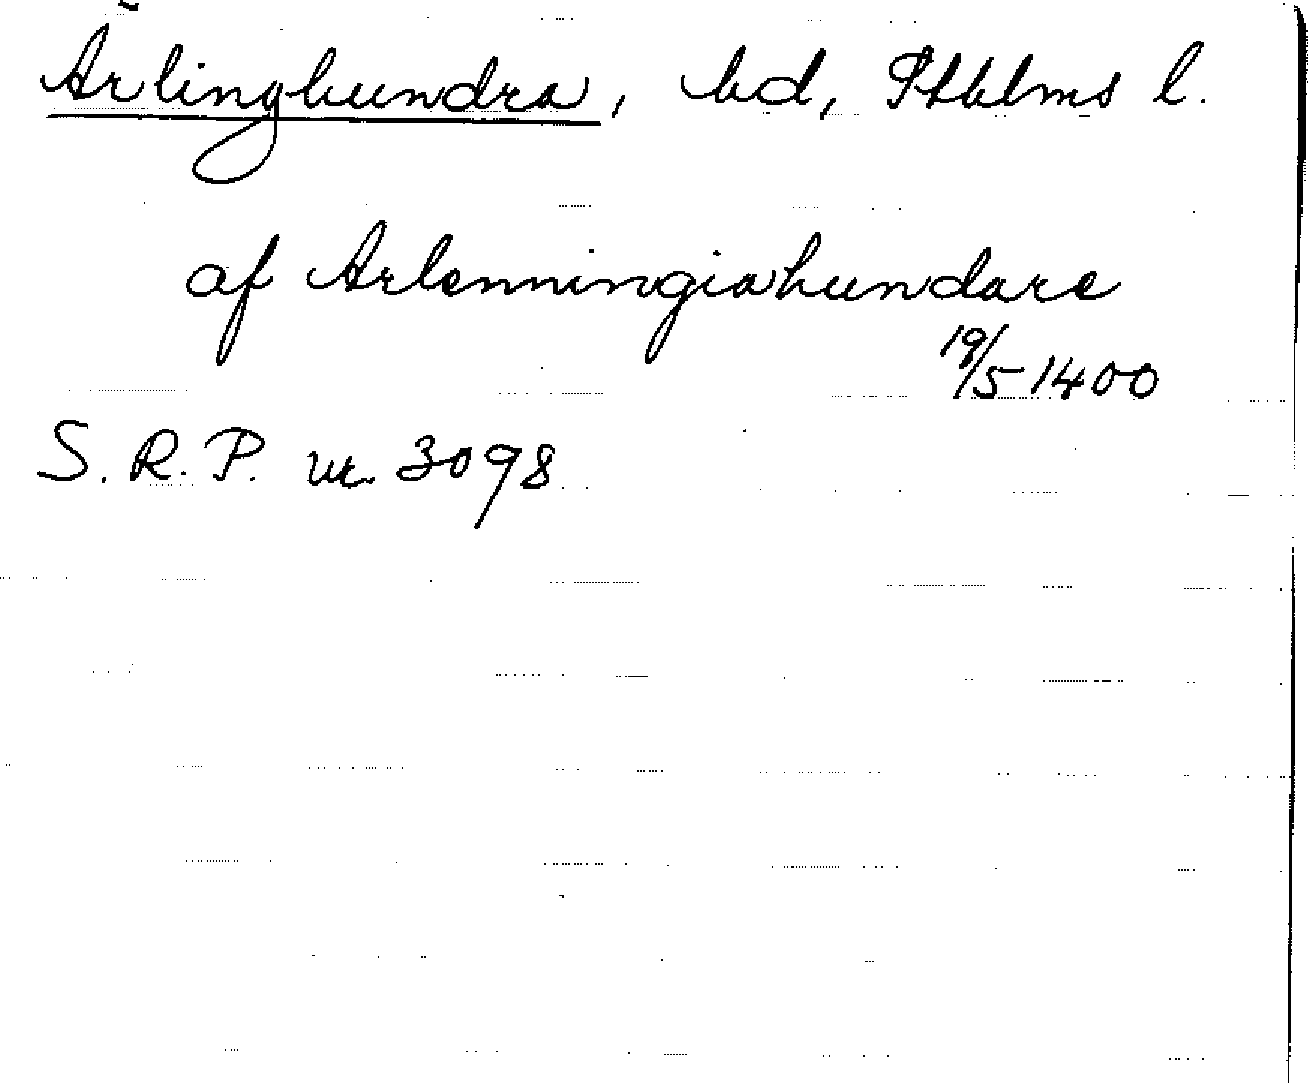 Ärlinghundra, hd, Sthlms l.
af Arlenningiahundare
19/5 1400
S. R. P. nr. 3098